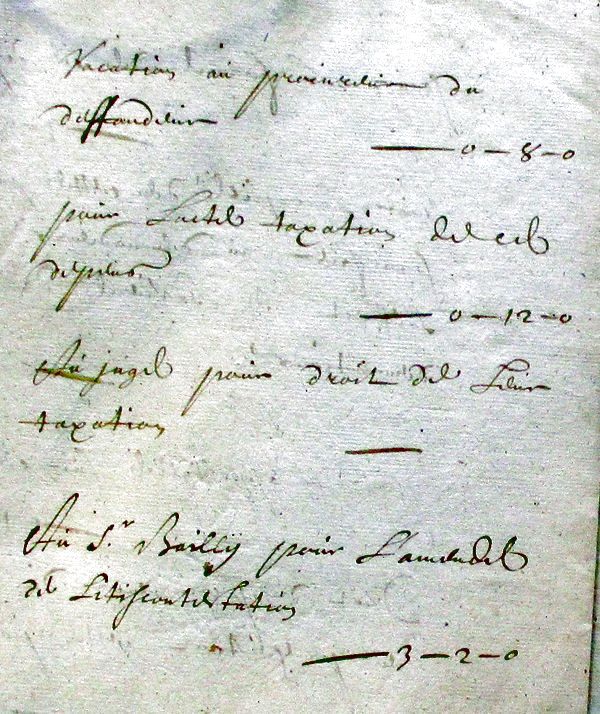 Vacation au procureur du
deffandeur
0 - 8 - 0
pour Lacte de taxation de ces
depens
0 - 12 - 0
Au juge pour droit de Leur
taxation
Au S.r Bailly pour L'amende
de Litiscontestation
3 - 2 - 0